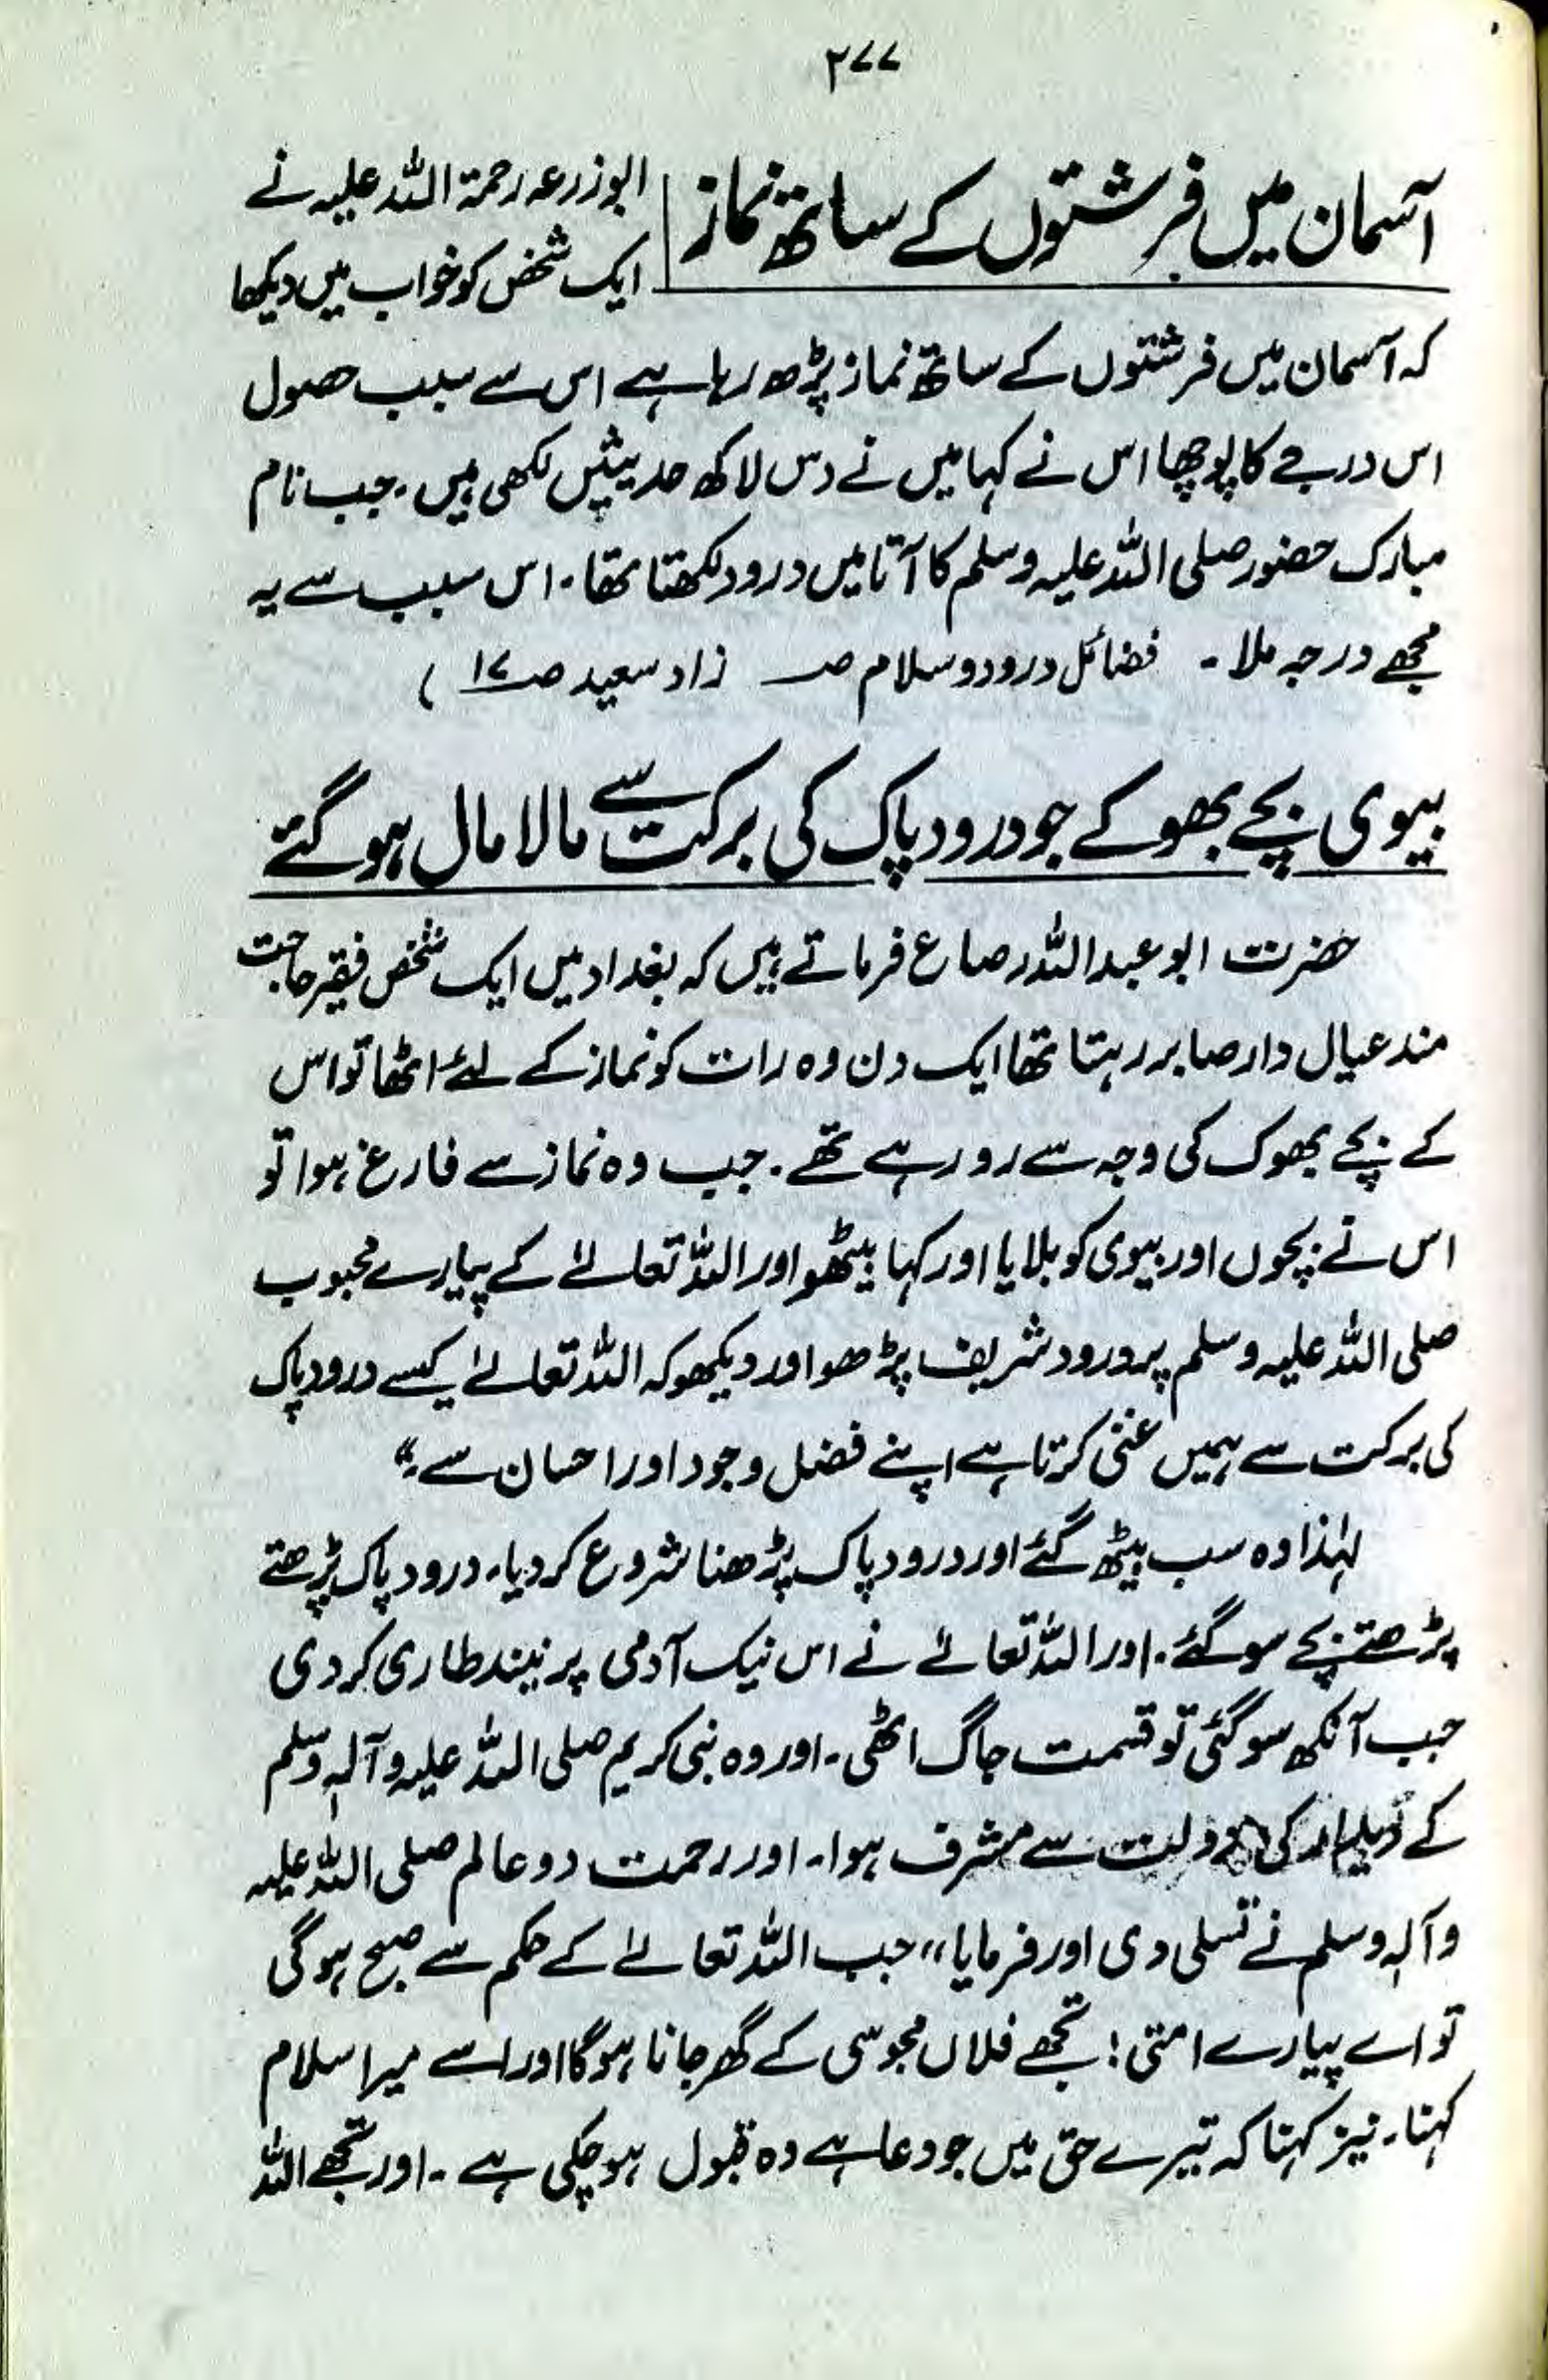 ۲۷۷
آسمان میں فرشتوں کے ساتھ نماز
ابوزرعہ رحمۃ اللہ علیہ نے
ایک شخص کو خواب میں دیکھا
کہ آسمان میں فرشتوں کے ساتھ نماز پڑھ رہا ہے اس سے سبب حصول
اس درجے کا پوچھا اس نے کہا میں نے دس لاکھ حدیثیں لکھی ہیں۔ جب نام
مبارک حضور صلی اللہ علیہ وسلم کا آتا میں درود لکھتا تھا۔ اس سبب سے یہ
مجھے درجہ ملا۔ فضائل درود و سلام صـ زاد سعید صـ۱۷ )
بیوی بچے بھوکے جو درود پاک کی برکت سے مالا مال ہو گئے
حضرت ابو عبد اللہ رصاع فرماتے ہیں کہ بغداد میں ایک شخص فقیر حاجت
مند عیال دار صابر رہتا تھا ایک دن وہ رات کو نماز کے لئے اٹھا تو اس
کے بچے بھوک کی وجہ سے رو رہے تھے۔ جب وہ نماز سے فارغ ہوا تو
اس نے بچوں اور بیوی کو بلایا اور کہا بیٹھو اور اللہ تعالےٰ کے پیارے محبوب
صلی اللہ علیہ وسلم پر درود شریف پڑھو اور دیکھو کہ اللہ تعالےٰ کیسے درود پاک
کی برکت سے ہمیں غنی کرتا ہے اپنے فضل و جود اور احسان سے۔“
لہٰذا وہ سب بیٹھ گئے اور درود پاک پڑھنا شروع کر دیا۔ درود پاک پڑھتے
پڑھتے بچے سو گئے۔ اور اللہ تعالےٰ نے اس نیک آدمی پر نیند طاری کر دی
جب آنکھ سو گئی تو قسمت جاگ اٹھی۔ اور وہ نبی کریم صلی اللہ علیہ وآلہٖ وسلم
کے دیدار کی دولت سے مشرف ہوا۔ اور رحمت دو عالم صلی اللہ علیہ
وآلہٖ وسلم نے تسلی دی اور فرمایا ،، جب اللہ تعالےٰ کے حکم سے صبح ہو گی
تو اے پیارے امتی! تجھے فلاں مجوسی کے گھر جانا ہو گا اور اسے میرا سلام
کہنا۔ نیز کہنا کہ تیرے حق میں جو دعا ہے وہ قبول ہو چکی ہے۔ اور تجھے اللہ